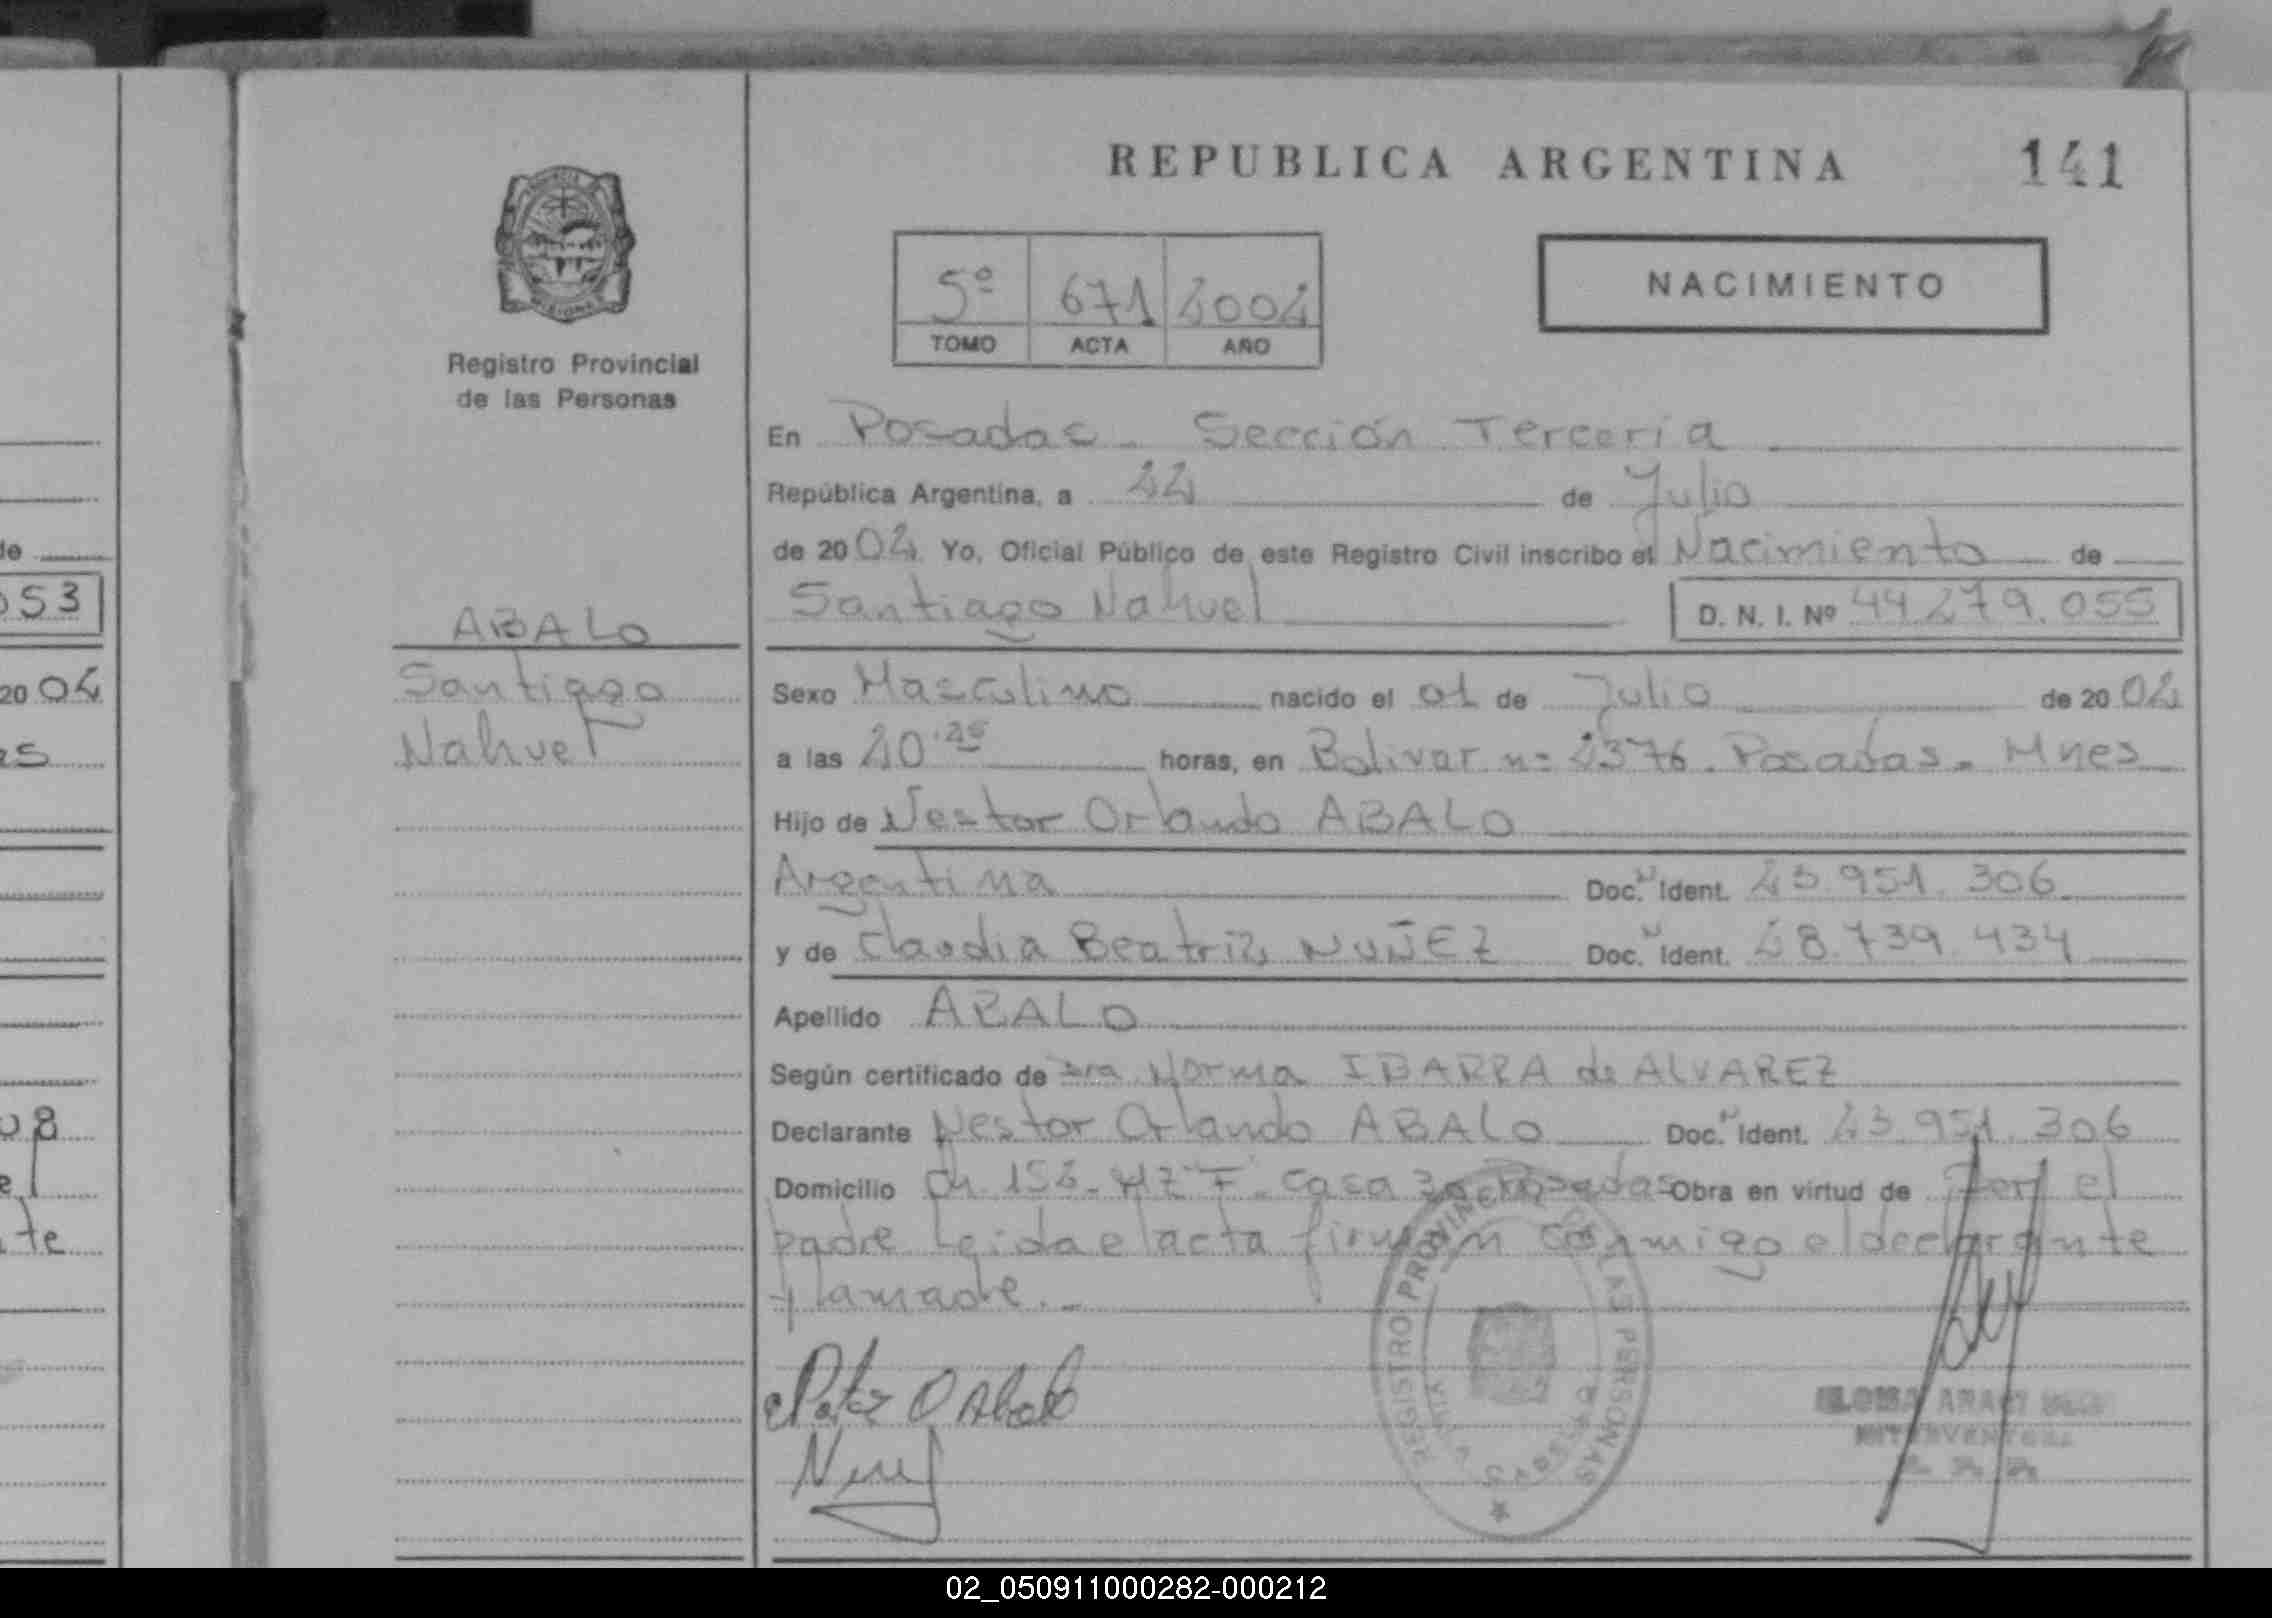 REPUBLICA ARGENTINA 141
5º 671 2002
TOMO ACTA AÑO
NACIMIENTO
Registro Provincial
de las Personas
En Posadas - Sección Tercería
República Argentina, a 22 de Julio
de 2002 Yo, Oficial Público de este Registro Civil inscribo el Nacimiento de
Santiago Nahuel D. N. I. Nº 44.279.055
053
ABALO
Santiago
Nahuel
2002
Sexo Masculino nacido el 01 de Julio de 2002
a las 20.25 horas, en Bolivar n= 2376. Posadas - Mnes
Hijo de Nestor Orlando ABALO
Argentina Doc. Ident. 23.951.306
y de Claudia Beatriz NUÑEZ Doc. Ident. 28.739.434
Apellido ABALO
Según certificado de Norma IBARRA de ALVAREZ
Declarante Nestor Orlando ABALO Doc. Ident. 23.951.306
Domicilio Ch. 152 - MZ "F" - Casa Posadas Obra en virtud de Ser el
padre Leida el acta firman conmigo el declarante
y la madre.-
REGISTRO PROVINCIAL DE LAS PERSONAS
02_050911000282-000212